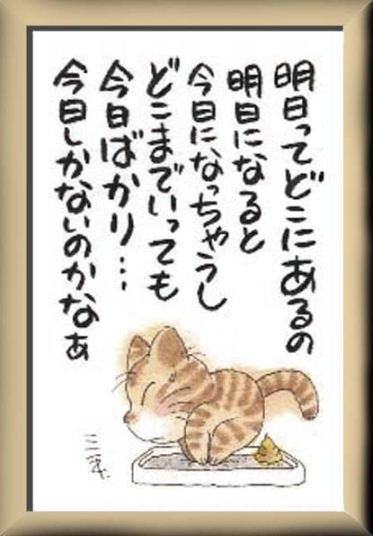 明日ってどこにあるの
明日になると
今日になっちゃうし
どこまでいっても
今日ばかり…
今日しかないのかなぁ